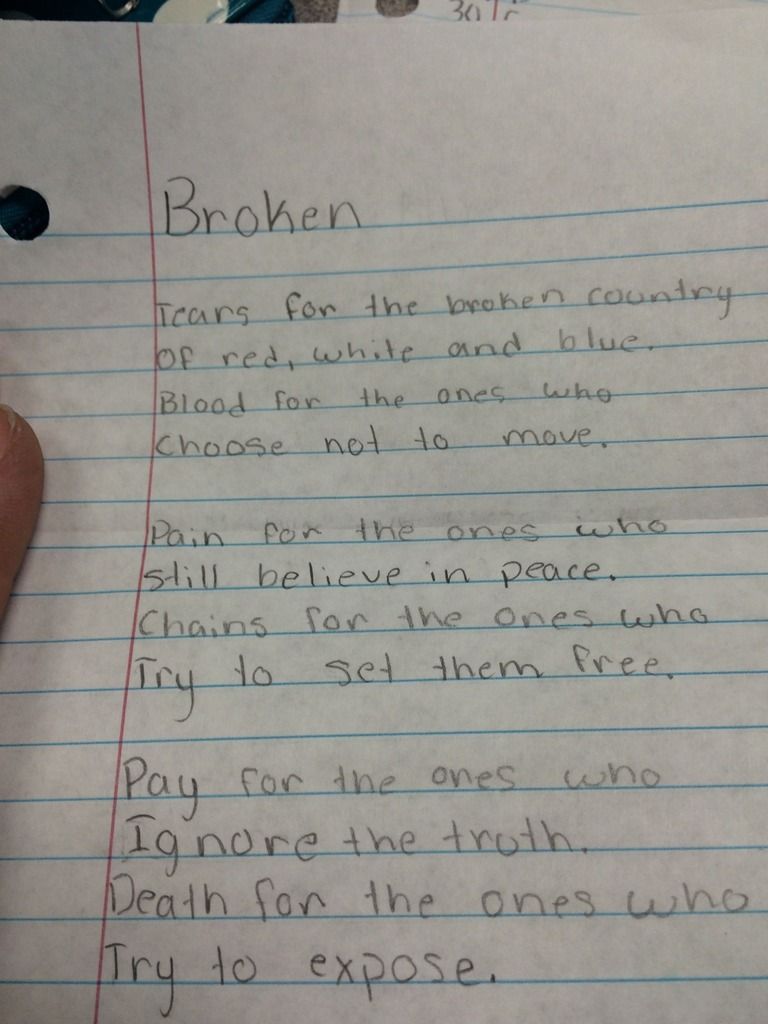 Broken
Tears for the broken country
Of red, white and blue.
Blood for the ones who
Choose not to move.
Pain for the ones who
still believe in peace.
Chains for the ones who
Try to set them free.
Pay for the ones who
Ignore the truth.
Death for the ones who
Try to expose.